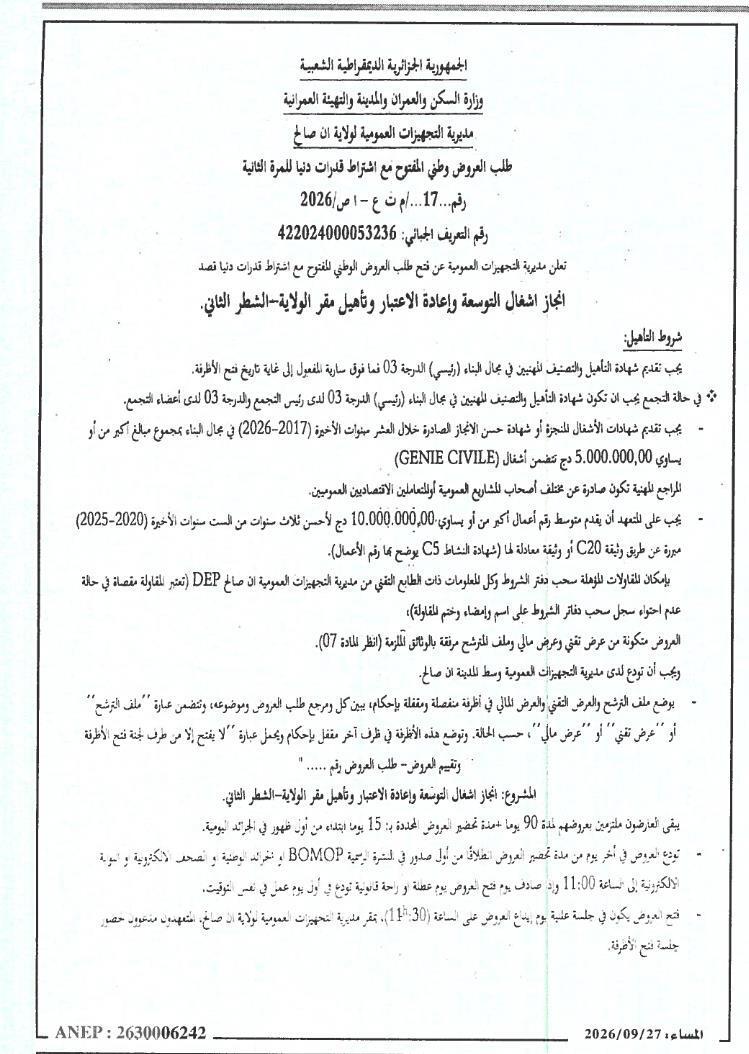 الجمهورية الجزائرية الديمقراطية الشعبية
وزارة السكن والعمران والمدينة والتهيئة العمرانية
مديرية التجهيزات العمومية لولاية ان صالح
طلب العروض وطني المفتوح مع اشتراط قدرات دنيا للمرة الثانية
رقم...17.../م ت ع – ا ص/2026
رقم التعريف الجبائي: 422024000053236
تعلن مديرية التجهيزات العمومية عن فتح طلب العروض الوطني المفتوح مع اشتراط قدرات دنيا قصد
انجاز اشغال التوسعة وإعادة الاعتبار وتأهيل مقر الولاية–الشطر الثاني.
شروط التأهيل:
يجب تقديم شهادة التأهيل والتصنيف المهنيين في مجال البناء (رئيسي) الدرجة 03 فما فوق سارية المفعول إلى غاية تاريخ فتح الأظرفة.
❖ في حالة التجمع يجب ان تكون شهادة التأهيل والتصنيف المهنيين في مجال البناء (رئيسي) الدرجة 03 لدى رئيس التجمع والدرجة 03 لدى أعضاء التجمع.
- يجب تقديم شهادات الأشغال المنجزة أو شهادة حسن الانجاز الصادرة خلال العشر سنوات الأخيرة (2017-2026) في مجال البناء بمجموع مبالغ أكبر من أو
يساوي 5.000.000,00 دج تتضمن أشغال (GENIE CIVILE)
المراجع المهنية تكون صادرة عن مختلف أصحاب المشاريع العمومية أوالمتعاملين الاقتصاديين العموميين.
- يجب على المتعهد أن يقدم متوسط رقم أعمال أكبر من أو يساوي 10.000.000,00 دج لأحسن ثلاث سنوات من الست سنوات الأخيرة (2020-2025)
مبررة عن طريق وثيقة C20 أو وثيقة معادلة لها (شهادة النشاط C5 يوضح بها رقم الأعمال).
بإمكان المقاولات المؤهلة سحب دفتر الشروط وكل المعلومات ذات الطابع التقني من مديرية التجهيزات العمومية ان صالح DEP (تعتبر المقاولة مقصاة في حالة
عدم احتواء سجل سحب دفاتر الشروط على اسم وإمضاء وختم المقاولة)،
العروض متكونة من عرض تقني وعرض مالي وملف المترشح مرفقة بالوثائق الملزمة (انظر المادة 07).
ويجب أن تودع لدى مديرية التجهيزات العمومية وسط المدينة ان صالح.
- يوضع ملف الترشح والعرض التقني والعرض المالي في أظرفة منفصلة ومقفلة بإحكام، يبين كل ومرجع طلب العروض وموضوعه، وتتضمن عبارة "ملف الترشح"
أو "عرض تقني" أو "عرض مالي"، حسب الحالة. وتوضع هذه الأظرفة في ظرف آخر مقفل بإحكام ويحمل عبارة "لا يفتح إلا من طرف لجنة فتح الأظرفة
وتقييم العروض– طلب العروض رقم ..... "
المشروع: انجاز اشغال التوسعة وإعادة الاعتبار وتأهيل مقر الولاية–الشطر الثاني.
يبقى العارضون ملتزمين بعروضهم لمدة 90 يوما +مدة تحضير العروض المحددة ب: 15 يوما ابتداء من أول ظهور في الجرائد اليومية.
- تودع العروض في أخر يوم من مدة تحضير العروض انطلاقا من أول صدور في النشرة الرسمية BOMOP او الجرائد الوطنية او الصحف الالكترونية و البوابة
الالكترونية إلى الساعة 11:00 وإذا صادف يوم فتح العروض يوم عطلة او راحة قانونية تودع في أول يوم عمل في نفس التوقيت.
- فتح العروض يكون في جلسة علنية يوم إيداع العروض على الساعة (11h:30)، بمقر مديرية التجهيزات العمومية لولاية ان صالح، المتعهدون مدعوون حضور
جلسة فتح الأظرفة.
المساء: 2026/09/27
ANEP : 2630006242